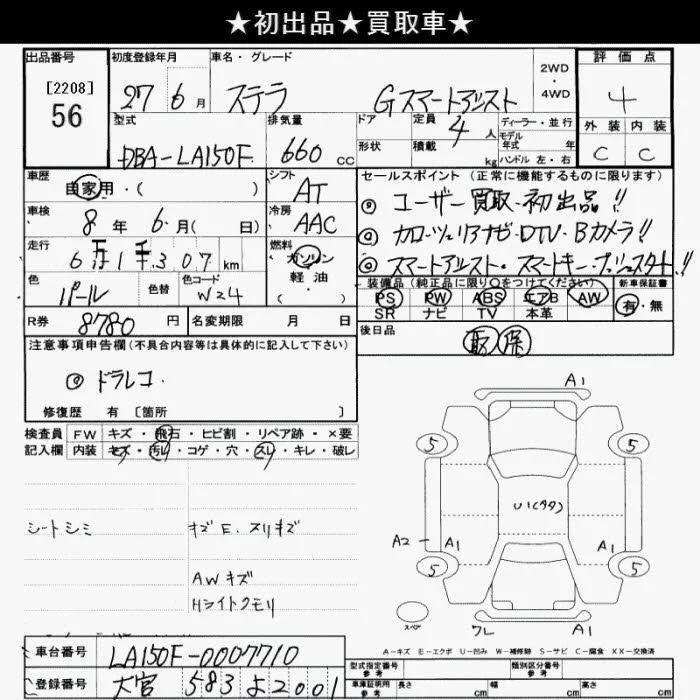 ★初出品★買取車★
出品番号 初度登録年月 車名・グレード 2WD・4WD 評価点
[2208] 56 27 6月 ステラ Gスマートアシスト 4
型式 排気量 ドア 定員 4人 ディーラー・並行 外装 内装
モデル年式 年
DBA-LA150F 660cc 形状 積載 kg ハンドル 左・右 C C
車歴 自家用・( ) シフト AT セールスポイント(正常に機能するものに限ります)
ユーザー買取・初出品!!
車検 8年 6月( 日) 冷房 AAC
カロッツェリアナビ・DTV・Bカメラ!!
走行 6万1千307km 燃料 ガソリン 軽油 ( )
スマートアシスト・スマートキー・プッシュスタート!!
色 パール 色替 色コード W24
装備品(純正品に限り○をつけてください) 新車保証書
PS PW ABS エアB AW 有・無
SR ナビ TV 本革
R券 8780円 名変期限 月 日
後日品 取 保
注意事項申告欄(不具合内容等は具体的に記入して下さい)
ドラレコ.
修復歴 有 [箇所 ]
検査員 FW キズ・飛石・ヒビ割・リペア跡・×要
記入欄 内装 キズ・汚れ・コゲ・穴・スレ・キレ・破レ
シートシミ キズE. スリキズ
AWキズ
Hライトクモリ
A1
5 5
U1(タタ)
A2 A1 A1
5 5
スペア ワレ A1
A-キズ E-エクボ U-凹み W-補修跡 S-サビ C-腐食 XX-交換済
車台番号 LA150F-0007710
型式指定番号 参考 類別区分番号 参考
登録番号 大宮 583 よ2001
車庫証明用 参考 長さ cm 幅 cm 高さ cm